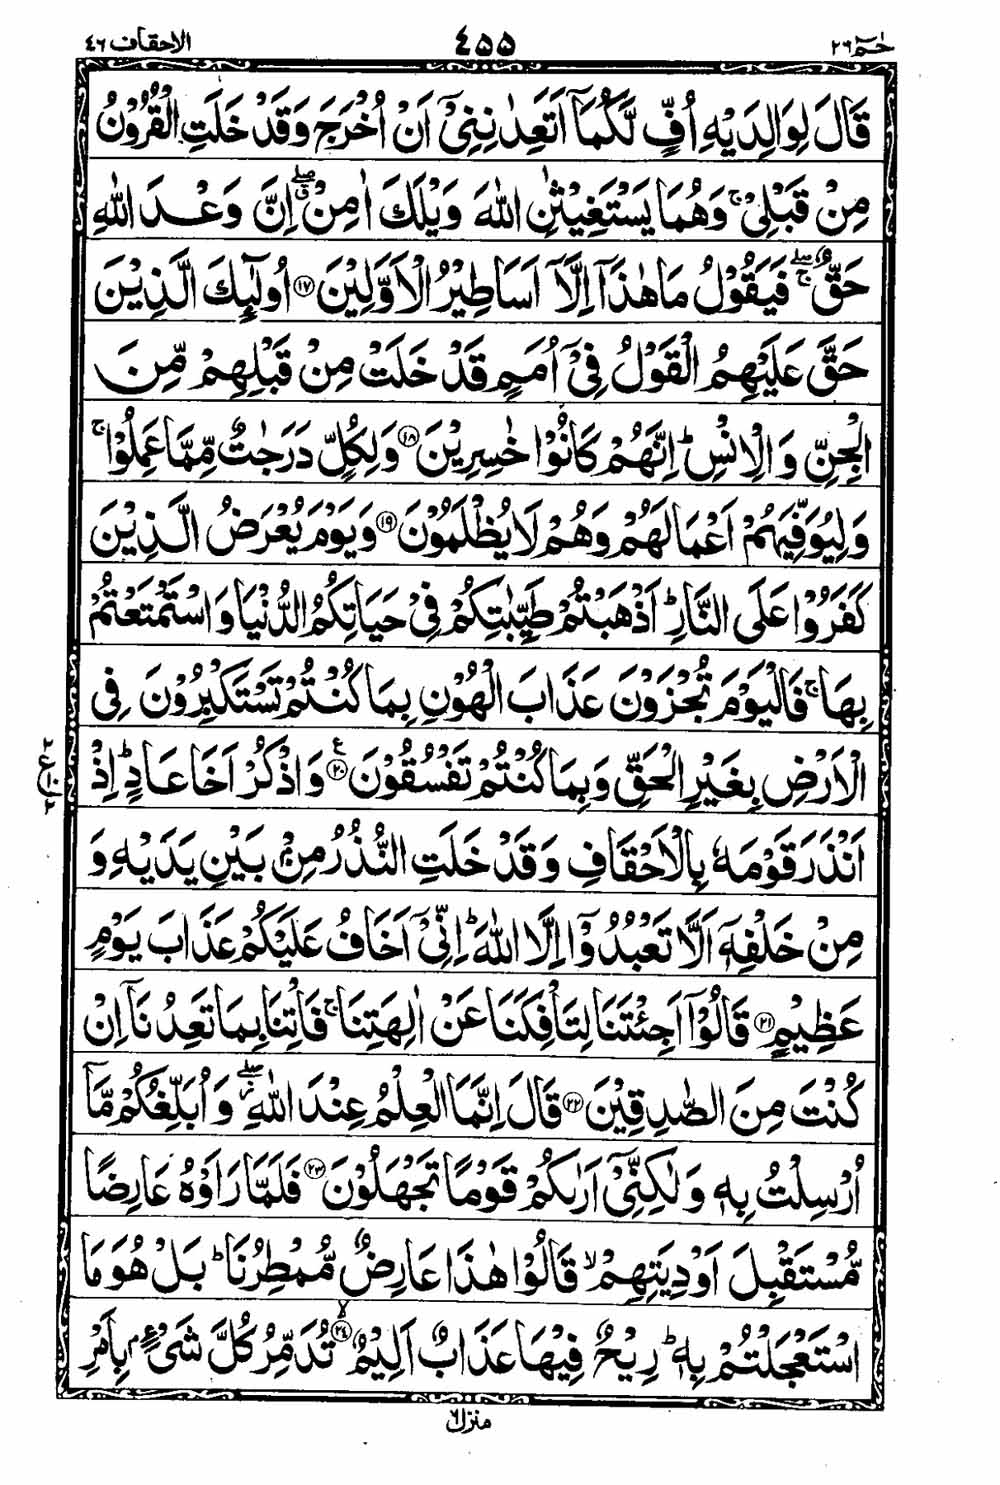 حٰمٓ ٢٦ ٤٥٥ الاحقاف ٤٦
قَالَ لِوَالِدَيْهِ اُفٍّ لَّكُمَاۤ اَتَعِدٰنِنِيْۤ اَنْ اُخْرَجَ وَقَدْ خَلَتِ الْقُرُوْنُ
مِنْ قَبْلِيْ ۚ وَهُمَا يَسْتَغِيْثٰنِ اللّٰهَ وَيْلَكَ اٰمِنْ ۖ اِنَّ وَعْدَ اللّٰهِ
حَقٌّ ۖۚ فَيَقُوْلُ مَا هٰذَاۤ اِلَّاۤ اَسَاطِيْرُ الْاَوَّلِيْنَ ١٧ اُولٰٓئِكَ الَّذِيْنَ
حَقَّ عَلَيْهِمُ الْقَوْلُ فِيْۤ اُمَمٍ قَدْ خَلَتْ مِنْ قَبْلِهِمْ مِّنَ
الْجِنِّ وَالْاِنْسِ ؕ اِنَّهُمْ كَانُوْا خٰسِرِيْنَ ١٨ وَلِكُلٍّ دَرَجٰتٌ مِّمَّا عَمِلُوْا ۚ
وَلِيُوَفِّيَهُمْ اَعْمَالَهُمْ وَهُمْ لَا يُظْلَمُوْنَ ١٩ وَيَوْمَ يُعْرَضُ الَّذِيْنَ
كَفَرُوْا عَلَى النَّارِ ؕ اَذْهَبْتُمْ طَيِّبٰتِكُمْ فِيْ حَيَاتِكُمُ الدُّنْيَا وَاسْتَمْتَعْتُمْ
بِهَا ۚ فَالْيَوْمَ تُجْزَوْنَ عَذَابَ الْهُوْنِ بِمَا كُنْتُمْ تَسْتَكْبِرُوْنَ فِي
الْاَرْضِ بِغَيْرِ الْحَقِّ وَبِمَا كُنْتُمْ تَفْسُقُوْنَ ٢٠ ع وَاذْكُرْ اَخَا عَادٍ ؕ اِذْ
٢ ع ١٠ ٢
اَنْذَرَ قَوْمَهٗ بِالْاَحْقَافِ وَقَدْ خَلَتِ النُّذُرُ مِنْۢ بَيْنِ يَدَيْهِ وَ
مِنْ خَلْفِهٖۤ اَلَّا تَعْبُدُوْۤا اِلَّا اللّٰهَ ؕ اِنِّيْۤ اَخَافُ عَلَيْكُمْ عَذَابَ يَوْمٍ
عَظِيْمٍ ٢١ قَالُوْۤا اَجِئْتَنَا لِتَاْفِكَنَا عَنْ اٰلِهَتِنَا ۚ فَاْتِنَا بِمَا تَعِدُنَاۤ اِنْ
كُنْتَ مِنَ الصّٰدِقِيْنَ ٢٢ قَالَ اِنَّمَا الْعِلْمُ عِنْدَ اللّٰهِ ۖ وَاُبَلِّغُكُمْ مَّاۤ
اُرْسِلْتُ بِهٖ وَلٰكِنِّيْۤ اَرٰىكُمْ قَوْمًا تَجْهَلُوْنَ ٢٣ فَلَمَّا رَاَوْهُ عَارِضًا
مُّسْتَقْبِلَ اَوْدِيَتِهِمْ ۙ قَالُوْا هٰذَا عَارِضٌ مُّمْطِرُنَا ؕ بَلْ هُوَ مَا
اسْتَعْجَلْتُمْ بِهٖ ؕ رِيْحٌ فِيْهَا عَذَابٌ اَلِيْمٌ ٢٤ ۙ تُدَمِّرُ كُلَّ شَيْءٍۭ بِاَمْرِ
منزل ٦